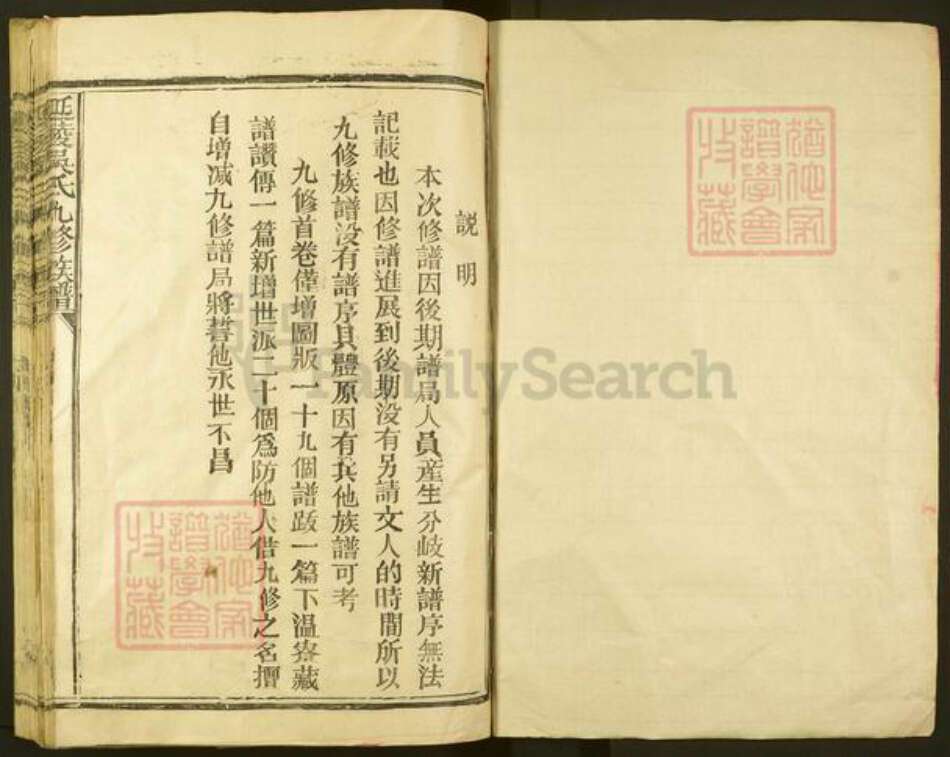 説明
本次修譜因後期譜局人員産生分歧新譜序無法
記載也因修譜進展到後期没有另請文人的時間所以
九修族譜没有譜序具體原因有其他族譜可考
九修首卷僅增圖版一十九個譜跋一篇下温寮藏
譜讃傳一篇新增世派二十個爲防他人借九修之名擅
自增减九修譜局將誓他永世不昌
延陵吳氏九修族譜
FamilySearch